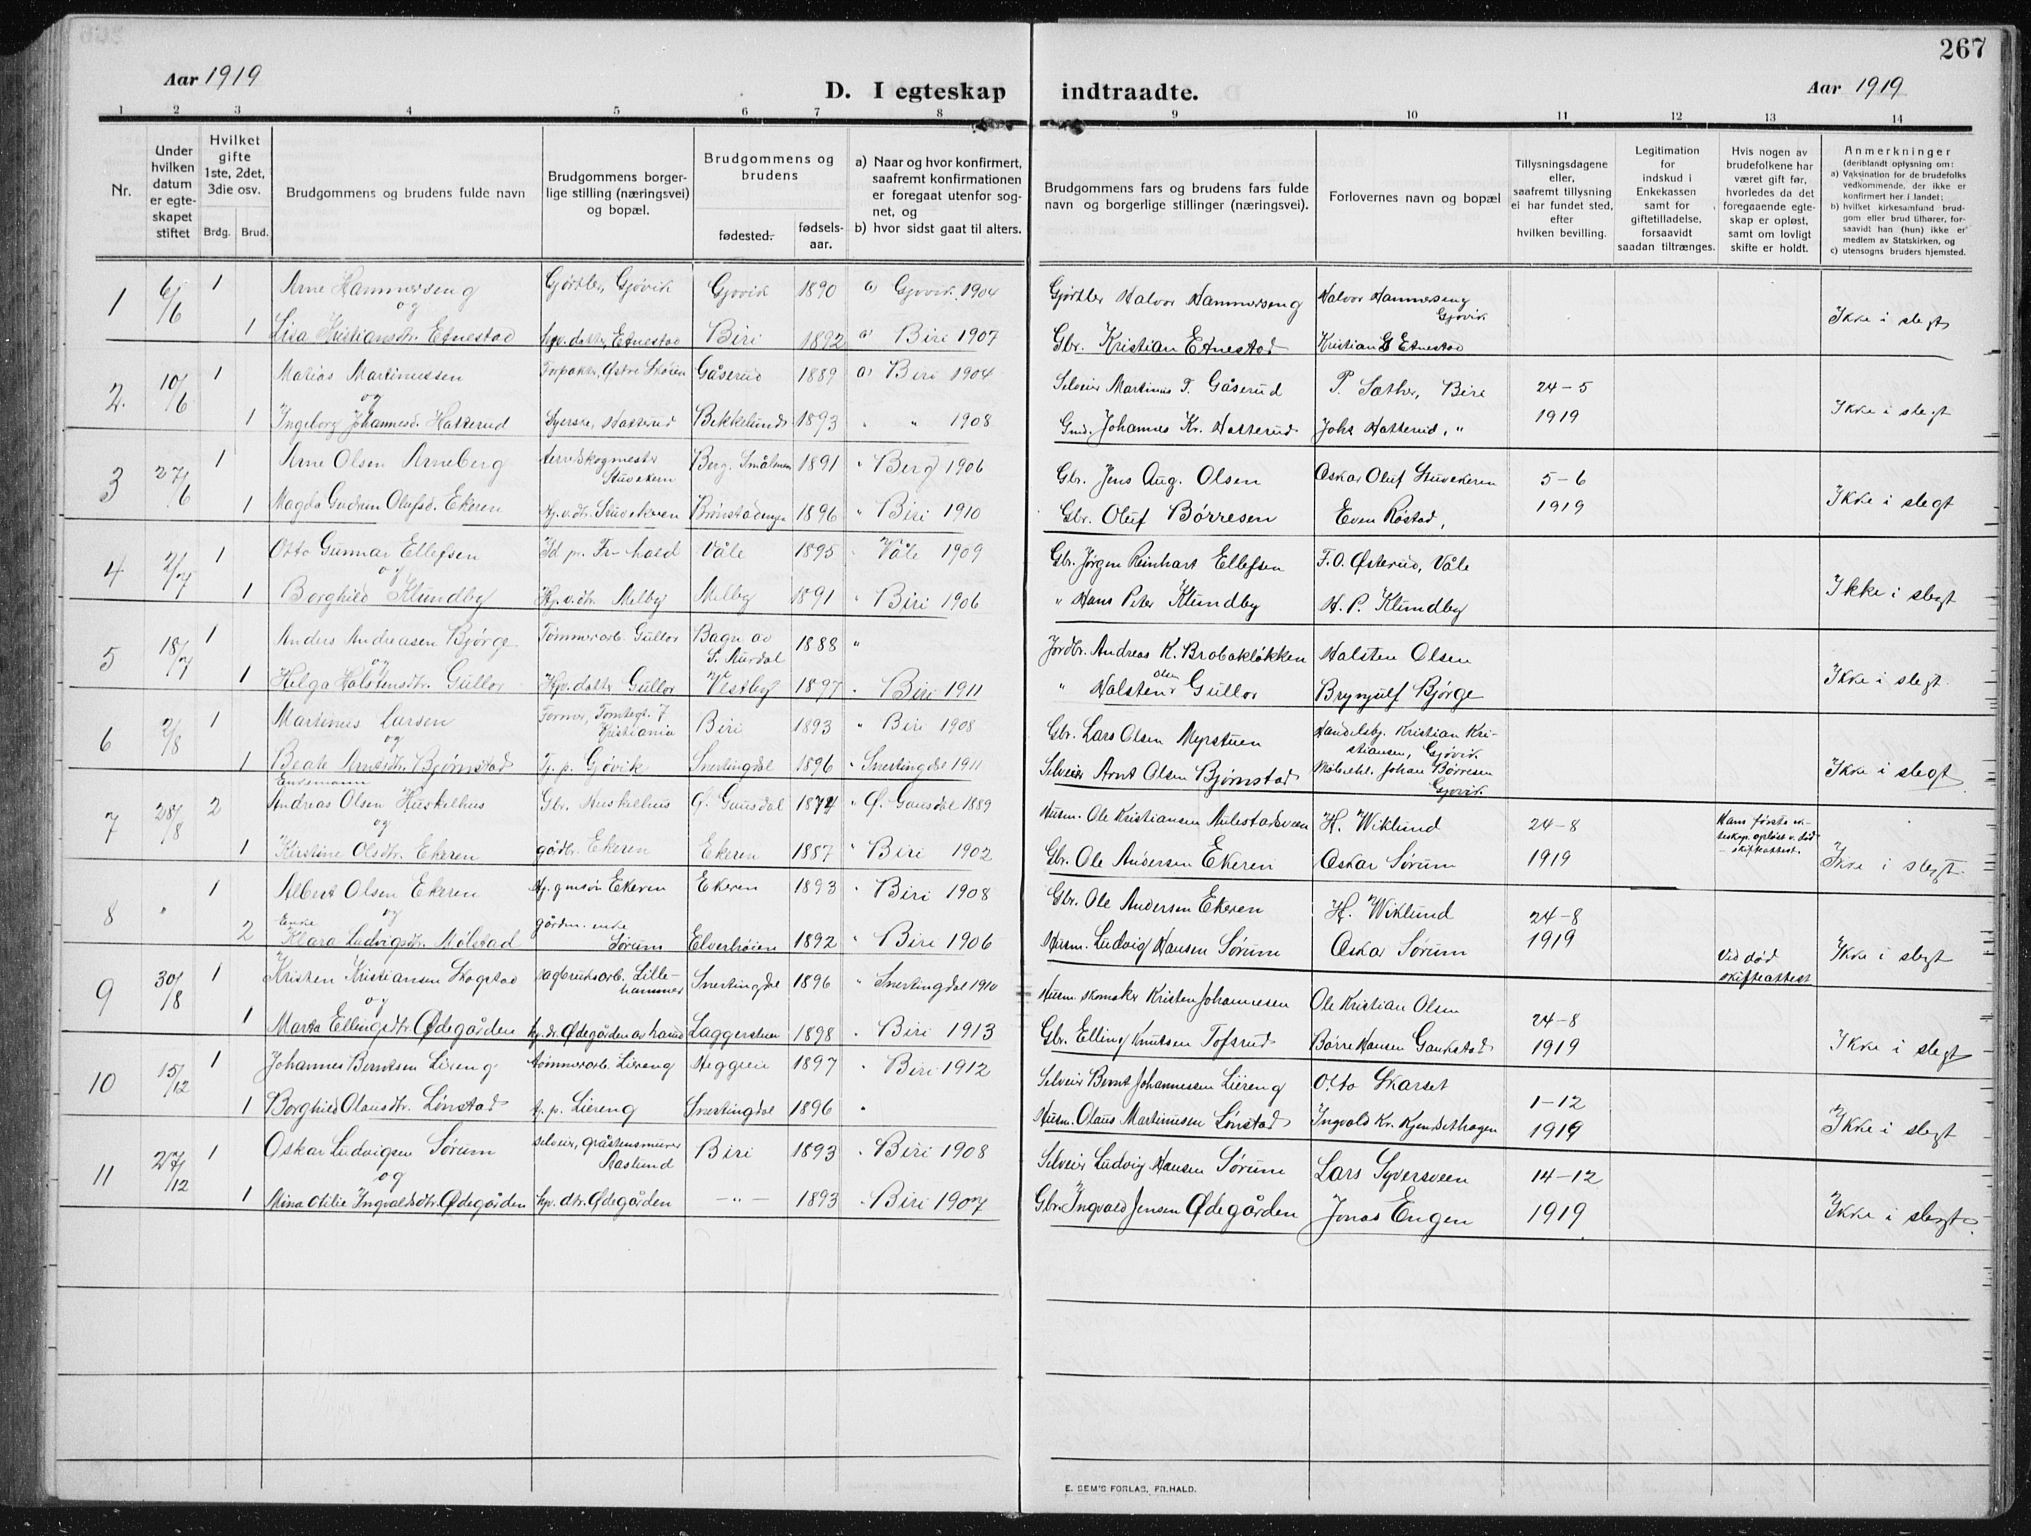 267
Aar 1919
D. I egteskap indtraadte.
Aar 1919
1 2 3 4 5 6 7 8 9 10 11 12 13 14
Nr.
Under hvilken datum er egteskapet stiftet
Hvilket gifte 1ste, 2det, 3die osv.
Brdg. Brud.
Brudgommens og brudens fulde navn
Brudgommens borgerlige stilling (næringsvei) og bopæl.
Brudgommens og brudens
fødested.
fødselsaar.
a) Naar og hvor konfirmert, saafremt konfirmationen er foregaat utenfor sognet, og
b) hvor sidst gaat til alters.
Brudgommens fars og brudens fars fulde navn og borgerlige stillinger (næringsvei).
Forlovernes navn og bopæl
Tillysningsdagene eller, saafremt tillysning ei har fundet sted, efter hvilken bevilling.
Legitimation for indskud i Enkekassen samt for giftetilladelse, forsaavidt saadan tiltrænges.
Hvis nogen av brudefolkene har været gift før, hvorledes da det foregaaende egteskap er opløst, samt om lovligt skifte er holdt.
Anmerkninger
(deriblandt oplysning om:
a) Vaksination for de brudefolks vedkommende, der ikke er konfirmert her i landet;
b) hvilket kirkesamfund brudgom eller brud tilhører, forsaavidt han (hun) ikke er medlem av Statskirken, og
c) utensogns bruders hjemsted.
1 6/6 1 Arne Hammerseng Gjørtler, Gjøvik Gjøvik 1890 a) Gjøvik 1904 Gjørtler Halvor Hammerseng Halvor Hammerseng Gjøvik
og
1 Lisa Kristiansdtr. Etnestad hjv. datter, Etnestad Biri 1892 a) Biri 1907 Gbr. Kristian Etnestad Kristian G Etnestad Ikke i slegt
2. 10/6 1 Matias Martinussen Forpakter, Østre Skören Gåserud 1889 a) Biri 1904 Selveier Martinus T. Gåserud P. Sæther, Biri 24-5
og
1 Ingeborg Johannesd. Hatterud Syerske, Hatterud Bekkelunds 1893 " " 1908 Gmd. Johannes Kr. Hatterud Johs Hatterud, " 1919 Ikke i slegt
3 27/6 1 Arne Olsen Arneberg Herredskogmester Stuvekern Berg. Smålenene 1891 " Berg 1906 Gbr. Jens Aug. Olsen Oskar Oluf Stuvekeren 5-6
1 Magda Gudrun Olufsd. Ekeren Hj.v.dtr. Stuvekeren Brønstadenga 1896 " Biri 1910 Gbr. Oluf Børresen Even Røstad, 1919 Ikke i slegt
4 2/7 1 Otto Gunnar Ellefsen Id pr. Fr-hald Våle 1895 " Våle 1909 Gbr. Jørgen Reinhart Ellefsen F.O. Østerud, Våle
og
1 Borghild Klundby Hj.v.dtr. Melby Melby 1891 " Biri 1906 " Hans Peter Klundby H. P. Klundby Ikke i slegt
5 18/7 1 Anders Andreasen Bjørge Tømmerarb. Gullor Bagn av S. Aurdal 1888 " Jordbr. Andreas K. Brobakløkken Halsten Olsen
og
1 Helga Halstensdtr. Gullor Hjv. datter Gullor Vestby 1897 " Biri 1911 " Halsten Olsen Gullor Brynjulf Bjørge Ikke i slegt
6 2/8 1 Martinus Larsen Former, Tomtegt. 7 Kristiania Biri 1893 " Biri 1908 Gbr. Lars Olsen Myrstuen Handelsbj. Kristian Kristiansen, Gjøvik
og
1 Beate Arnesdtr. Bjørnstad Tj. p. Gjøvik Snertingdal 1896 " Snertingdal 1911 Selveier Arnt Olsen Bjørnstad Møbelhdl. Johan Børresen Gjøvik Ikke i slegt
7 28/8 2 Enkemann Andreas Olsen Huskelhus Gbr. Huskelhus Ø. Gausdal 1874 " Ø. Gausdal 1889 Husm. Ole Kristiansen Aulestadsveen H. Wiklund 24-8 Hans første ekteskap opløst v. død - skifteattest.
og
1 Kirstine Olsdtr. Ekeren gårdbr. Ekeren Ekeren 1887 " Biri 1902 Gbr. Ole Andersen Ekeren Oskar Sørum 1919 Ikke i slegt
8 " 1 Albert Olsen Ekeren Hj. gmsøn Ekeren Ekeren 1893 " Biri 1908 Gbr. Ole Andersen Ekeren H. Wiklund 24-8
og
2 Enke Klara Ludvigsdtr. Mølstad gårdm. enke Sørum Elverhøien 1892 " Biri 1906 Husm. Ludvig Hansen Sørum Oskar Sørum 1919 Ved død skifteattest Ikke i slegt
9 30/8 1 Kristen Kristiansen Skogstad Sagbruksarb. Lillehammer Snertingdal 1896 " Snertingdal 1910 Husm. skomaker Kristen Johannesen Ole Kristian Olsen 24-8
og
1 Marta Ellingsdtr. Ødegården hj. dr. Ødegården av haug Laggerstuen 1898 " Biri 1913 Gbr. Elling Knutsen Tofsrud Børre Hansen Gaukstad 1919 Ikke i slegt
10 15/12 1 Johannes Berntsen Liereng tømmerarb. Liereng Heggeie 1897 " Biri 1912 Selveier Bernt Johannessen Liereng Otto Skarset 1-12
1 Borghild Olausdtr. Lønstad tj. p. Liereng Snertingdal 1896 " Husm. Olaus Martinusen Lønstad Ingvold Kr. Kjendsethagen 1919 Ikke i slegt
11 27/12 1 Oskar Ludvigsen Sørum selveier, gråstensmurer Aaslund Biri 1893 " Biri 1908 Selveier Ludvig Hansen Sørum Lars Syversveen 14-12
og
1 Mina Otilie Ingvaldsdtr. Ødegården hjv. dtr. Ødegården -"- 1893 " Biri 1907 Gbr. Ingvald Jensen Ødegården Jonas Engen 1919 Ikke i slegt.
E. SEM'S FORLAG, FR.HALD.